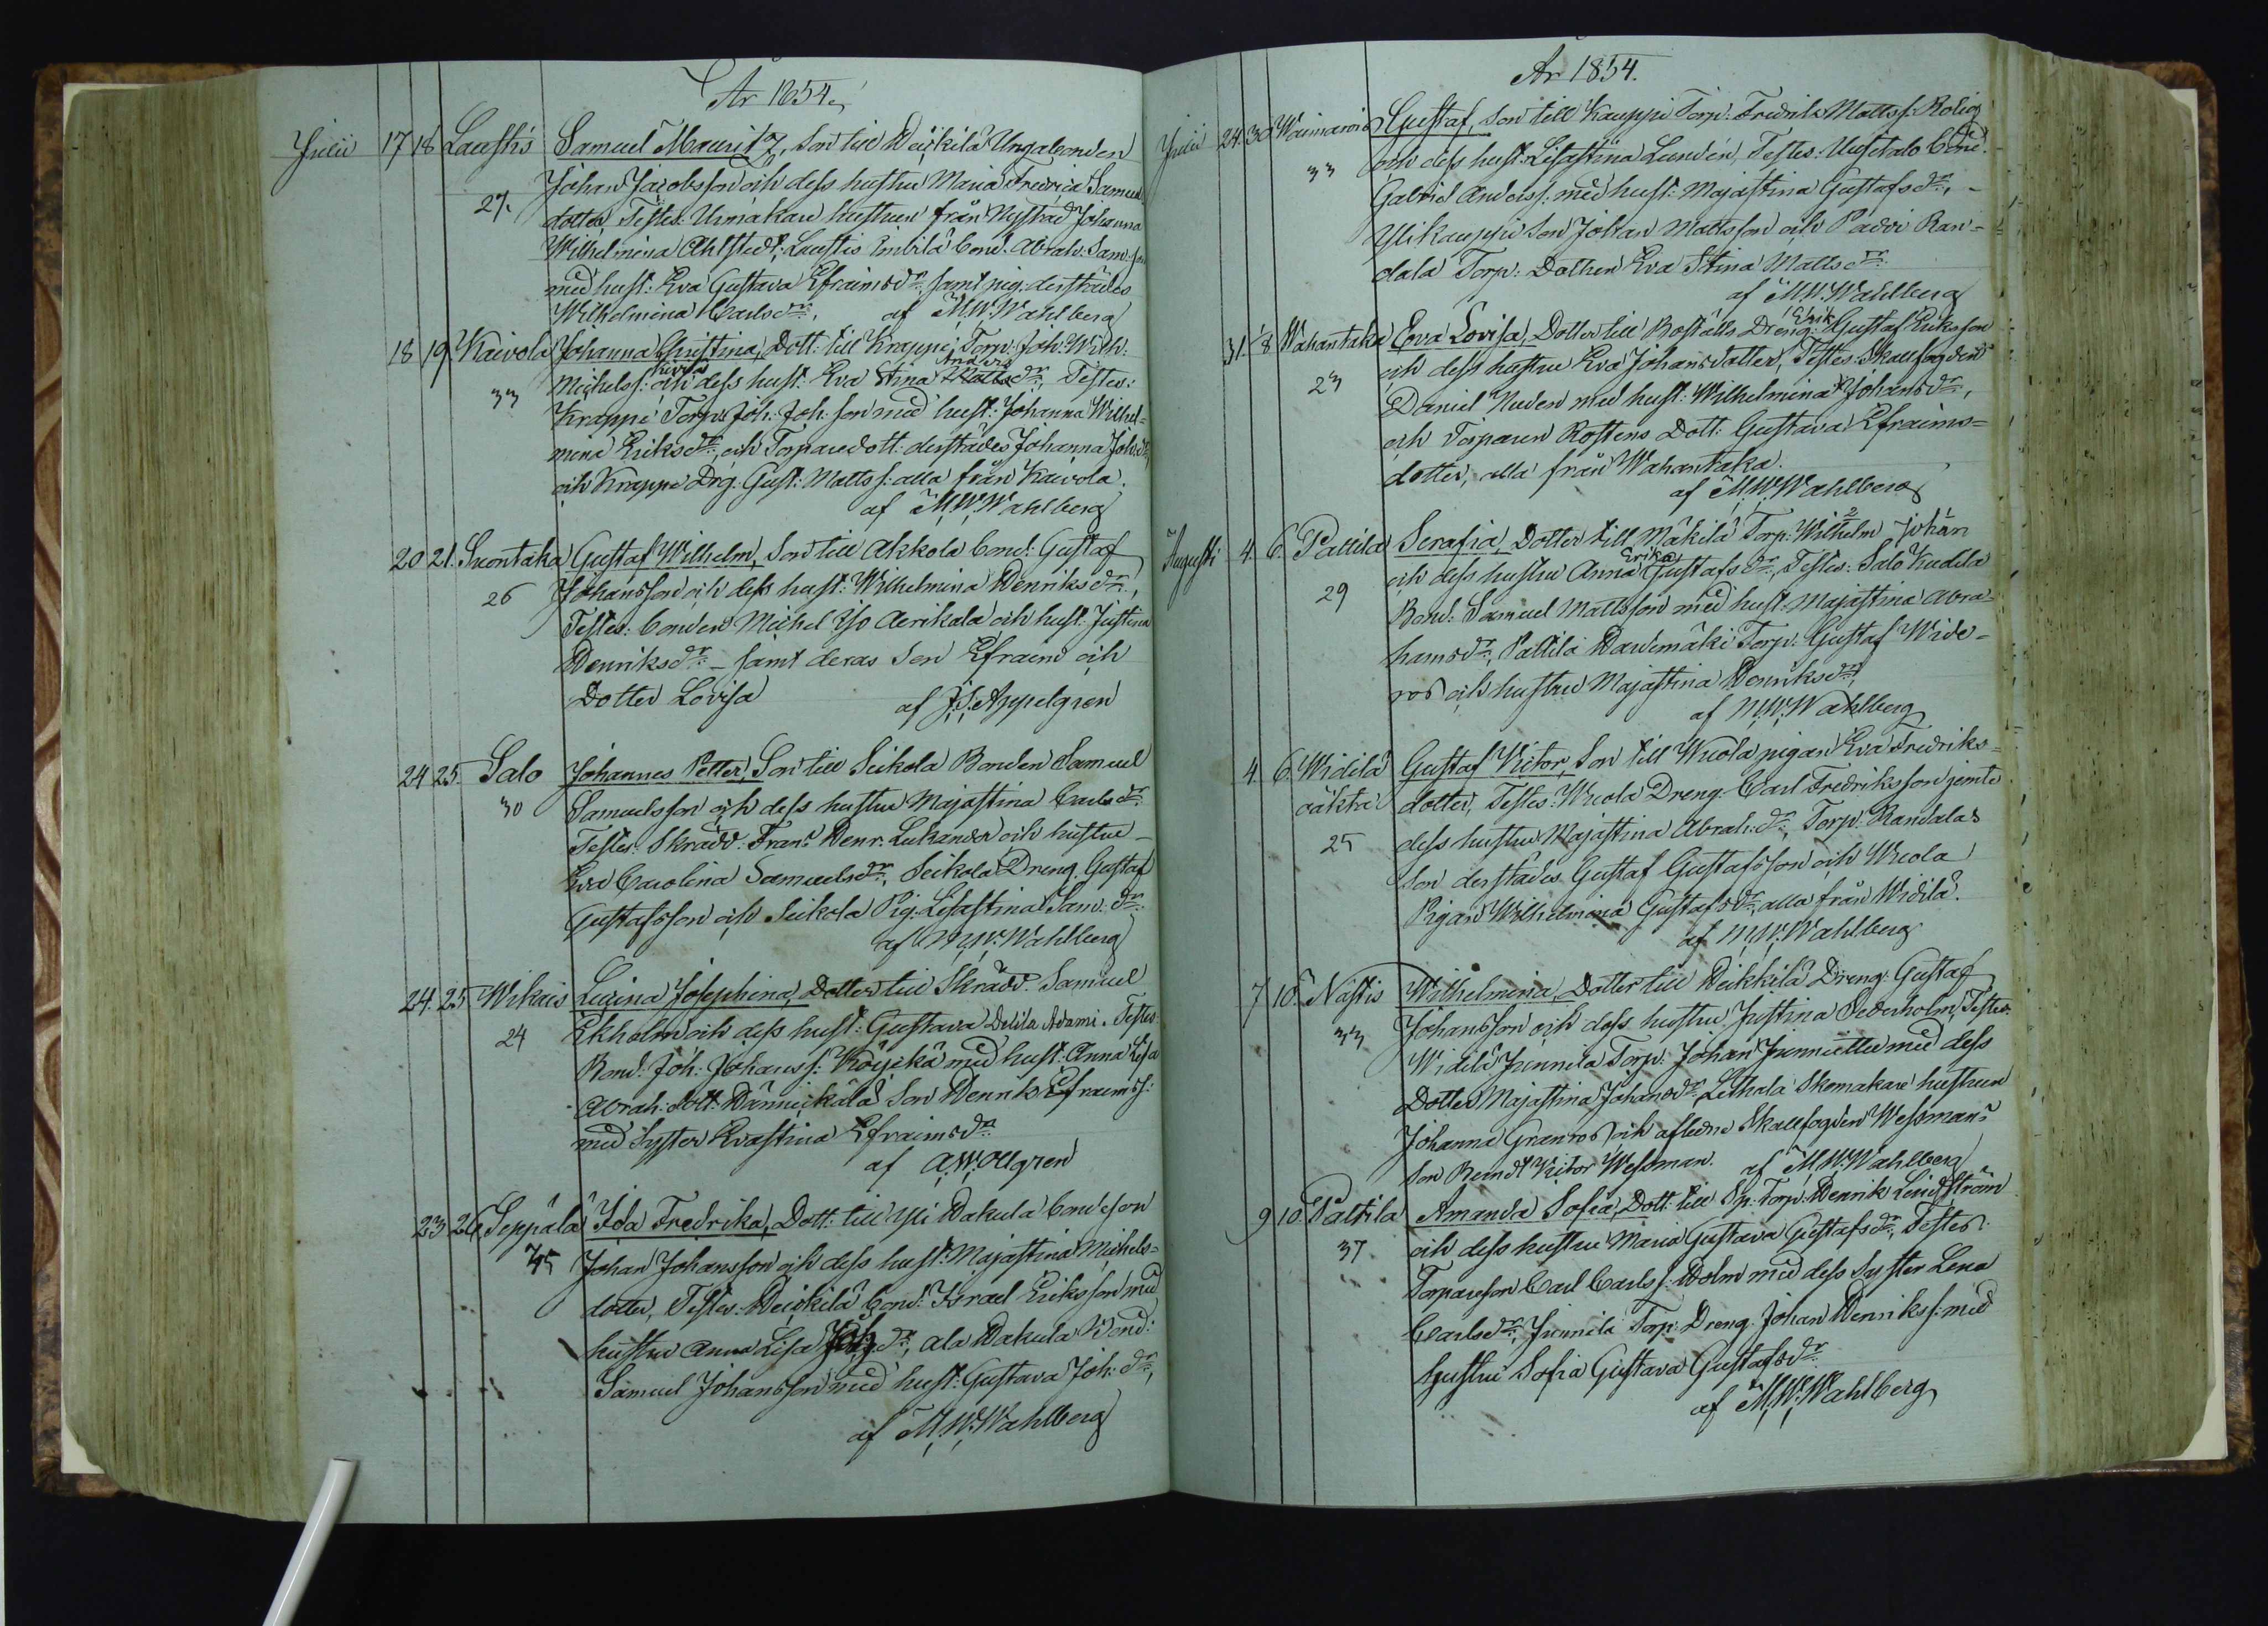 År 1854.
Julii 17 18 Laustis Samuel Mauritz, Son till Heikilä Ungabonden
Johan Jacobsson och dess hustru Maria Fredrica Samuels
27. dotter, Testes: Urmakare hustrun från Nystad Johanna
Wilhelmina Ahlstedt, Laustis Embilä bond. Abrah. Sam.son
med hust: Eva Gustava Efraimsdr. samt pig. derstädes
Wilhelmina Carlsdr. af M.W.Wahlberg
18 19. Kaivola Johanna Christina, Dott: till Krappi Torp. Joh: Wilh:
33 Michelss: och dess hust: Eva Stina Anders Mattsdr., Testes:
Krappi Torp. Joh: Joh:son med hust: Johanna Wilhel-
mina Eriksdr., och Torparedott. derstädes Johanna Joh.dr.
och Krappi Drg: Gust: Mattss: alla från Kaivola.
af M.W.Wahlberg
20 21. Suontaka Gustaf Wilhelm, Son till Akkola bond: Gustaf
26 Johansson och dess hust: Wilhelmina Henriksdr.,
Testes: bonden Michel Iso Aerikala och hust: Justina
Henriksdr. – samt deras Son Efraim och
Dotter Lovisa af J.S.Appelgren
24 25. Salo Johannes Petter, Son till Seikola Bonden Samuel
30 Samuelsson och dess hustru Majastina Carlsdr.
Testes: Skrädd. Frans Henr. Lukander och hustru
Eva Carolina Samuelsdr., Seikola Dreng. Gustaf
Gustafsson och Seikola Pig. Lisastina Sam: dr.
af M.W.Wahlberg
24. 25. Wikais Lucina Josephina, Dotter till Skrädd. Samuel
24 Ekholm och dess hust: Gustava Delila Adami. Testes:
Bond. Joh: Johanss: Köyikä med hust: Anna Lisa
Abrah: dott: Hännickälä Son Henrik Efraimss:
med Syster Evastina Efraimsdr.
af A.W.Ollgren
23 26. Seppälä Ida Fredrika, Dott: till Yli Hakula bondeson
35 Johan Johansson och dess hust: Majastina Michels-
dotter, Testes: Heikilä bond: Israel Eriksson med
hustru Anna Lisa Joh:dr., Ala Hakula Bond:
Samuel Johansson med hust: Gustava Joh: dr.,
af M.W.Wahlberg
År 1854.
Julii 24. 30. Waimarois Gustaf, Son till Kauppi Torp. Fredrik Mattss: Rolig
33 och dess hust: Lisastina Lundén, Testes: Uusitalo bond.
Gabriel Anderss: med hust: Majastina Gustafsdr., –
Ylikauppi Son Johan Mattsson och Paavi Ran-
dala Torp: Dottren Eva Stina Mattsdr.
af M.W.Wahlberg
31. /8 Wahantaka Eva Lovisa, Dotter till Boställs Dreng: Erik Gustaf Eriksson
23 och dess hustru Eva Johansdotter, Testes: Skallfogden
Daniel Nuden med hust: Wilhelmina Johansdr.,
och Torparen Rostens Dott: Gustava Efraims-
dotter, alla från Wahantaka.
af M.W.Wahlberg
Augusti 4. 6. Pattila Serafia, Dotter till Mäkilä Torp: Wilhelm Johan
29 och dess hustru Anna Erika Gustafsdr., Testes: Salo Kudila
Bond: Samuel Mattsson med hust: Majastina Abra-
hamsdr., Pattila Harjumäki Torp: Gustaf Wide-
ros och hustru Majastina Henriksdr.
af M.W.Wahlberg
4. 6. Widilä Gustaf Victor, Son till Wuola pigan Eva Fredriks-
oäkta dotter, Testes: Wuola Dreng. Carl Fredriksson jemte
25 dess hustru Majastina Abrah:dr., Torp: Randalas
Son derstädes Gustaf Gustafsson och Wuola
Pigan Wilhelmina Gustafsdr., alla från Widilä.
af M.W.Wahlberg
7 10. Nästis Wilhelmina, Dotter till Heikkilä Dreng: Gustaf
33 Johansson och dess hustru Justina Sederholm, Testes:
Widilä Junnila Torp: Johan Junnuttu med dess
Dotter Majastina Johansdr., Lethala Skomakare hustrun
Johanna Granroos och aflidne Skallfogden Wessmans
Son Berndt Victor Wessman. af M.W.Wahlberg
9 10. Pattila Amanda Sofia, Dott: till Sp: Torp: Henrik Lindström
37 och dess hustru Maria Gustava Gustafsdr., Testes:
Torpareson Carl Carlss: Holm med dess Syster Lena
Carlsdr., Junnila Torp: Dreng. Johan Henrikss: med
hustru Sofia Gustava Gustafsdr.
af M.W.Wahlberg